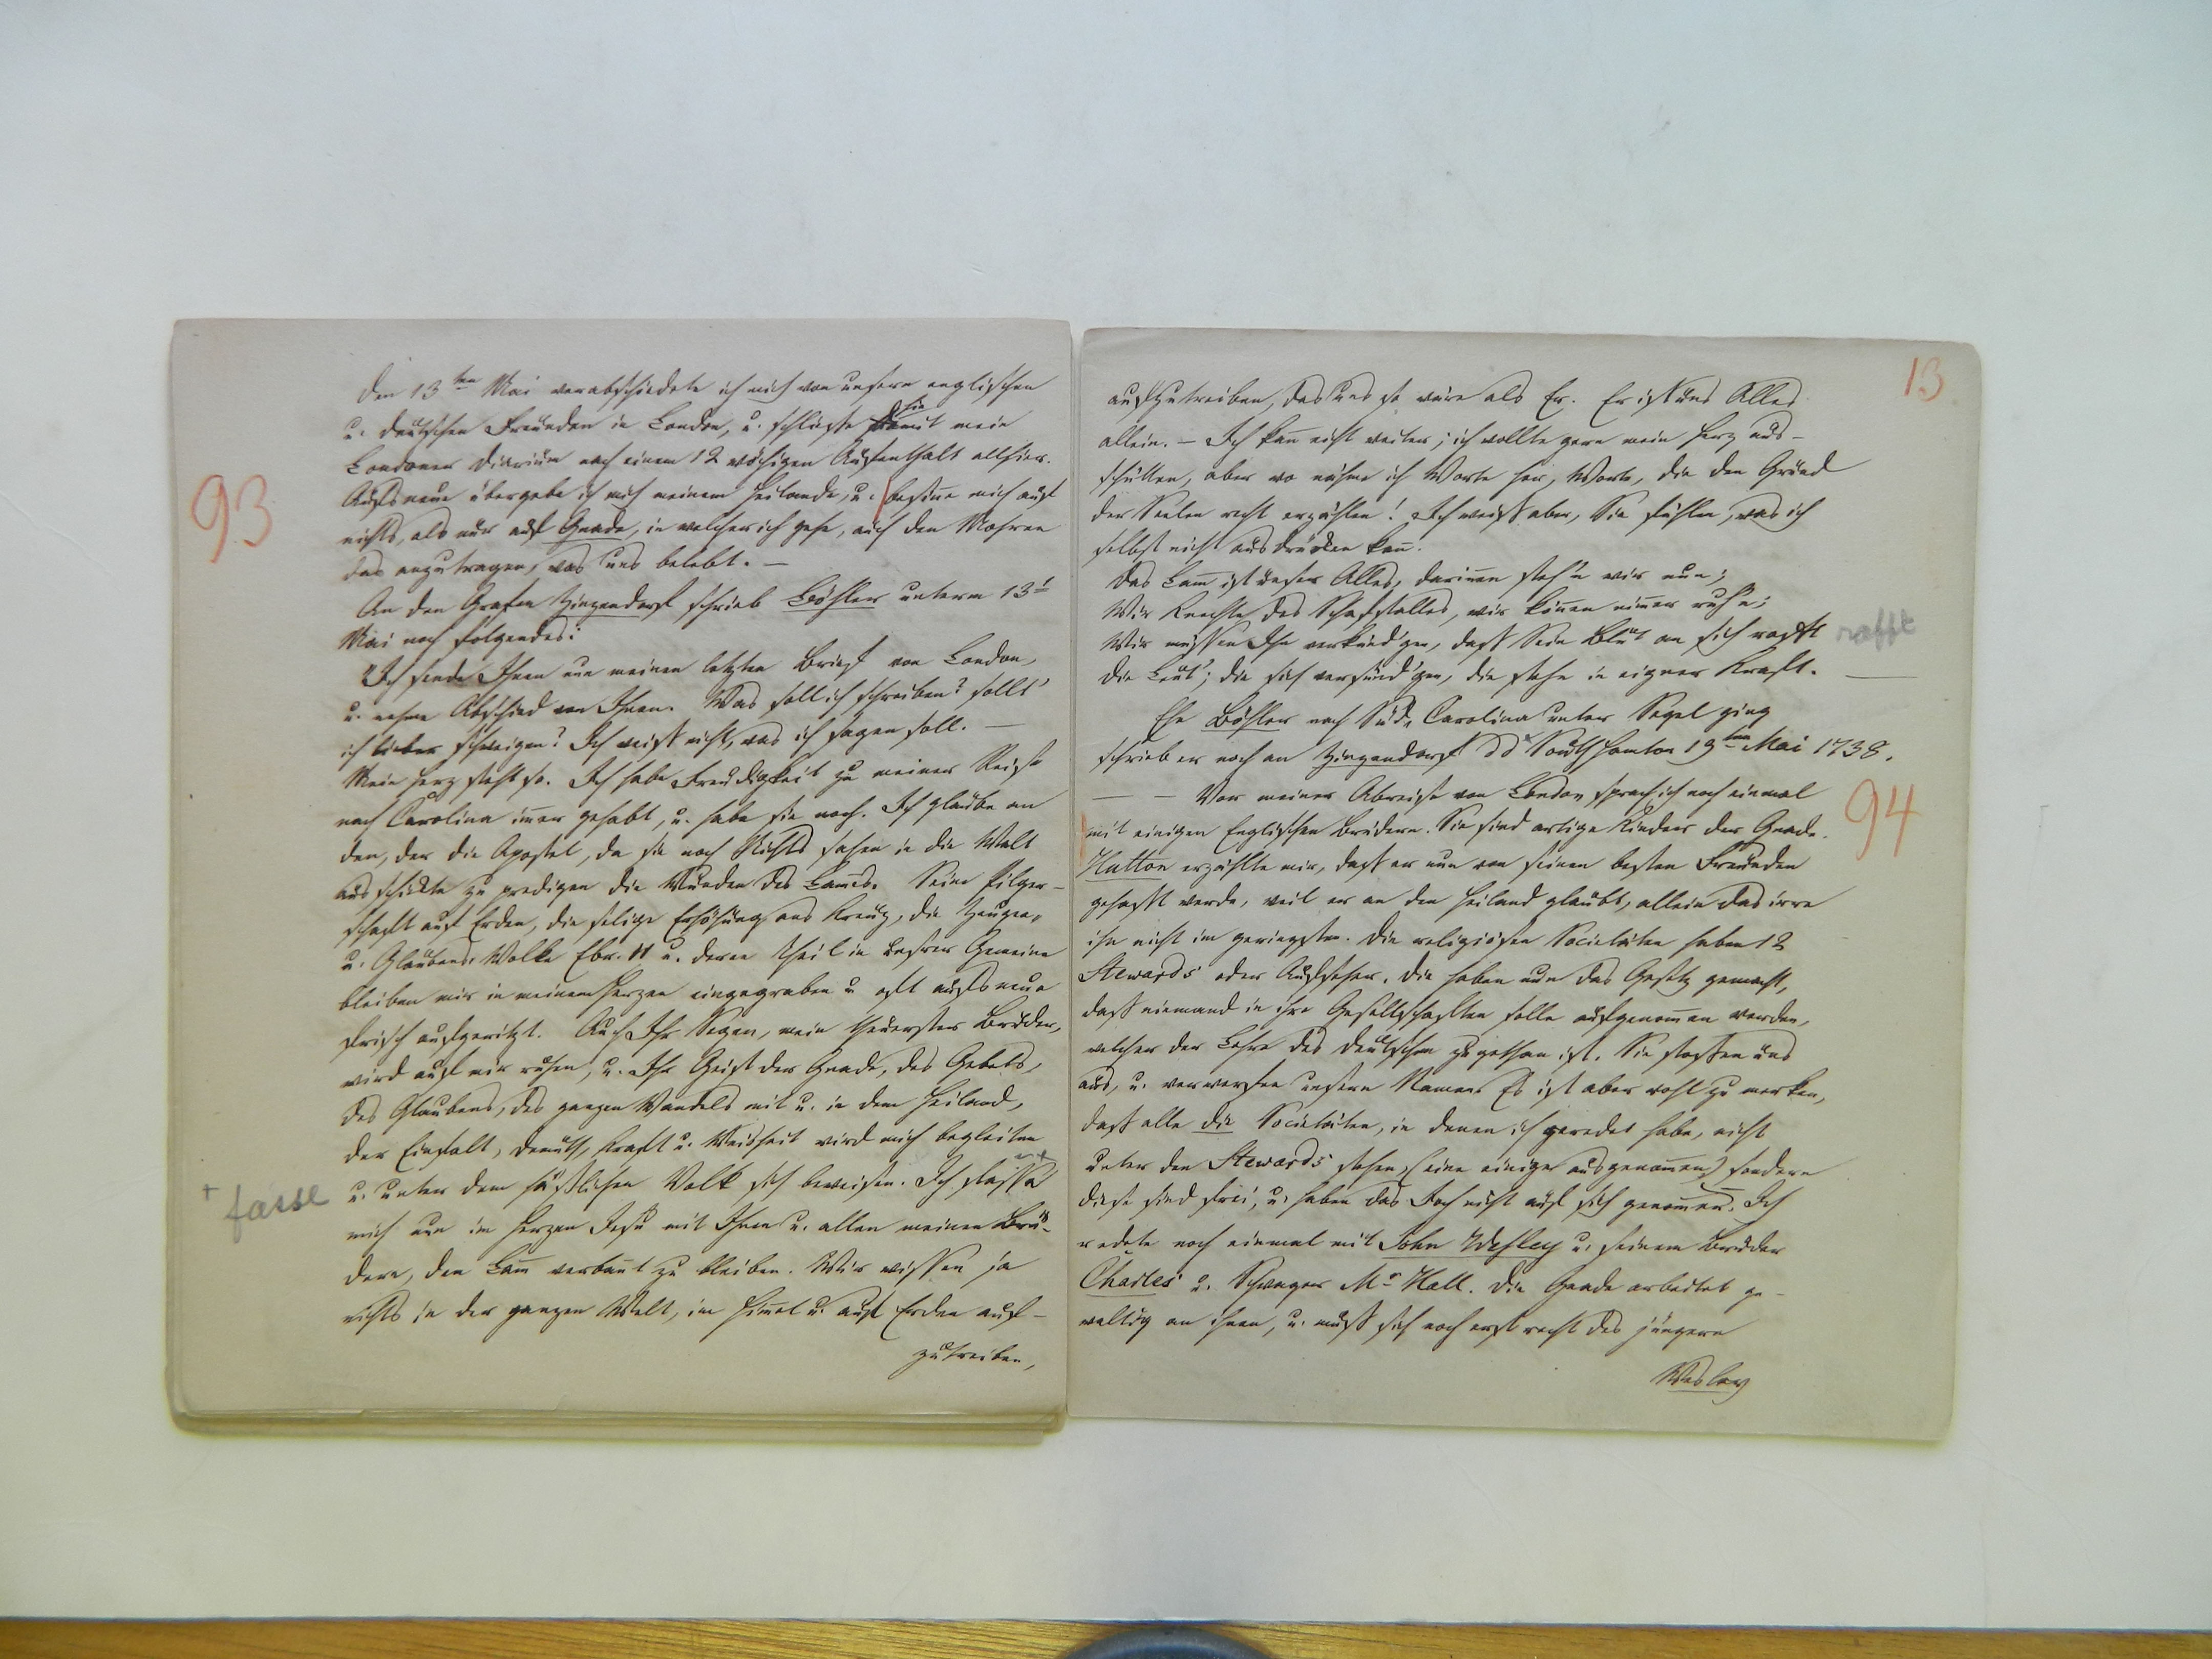 93
den 13ten Mai verabschiedete ich mich von unsern englischen
u. deutschen Freunden in London, u. schließe hiemit mein
Londoner Diarium nach einem 12 wöchigen Aufenthalt allhier.
Aufs neue übergebe ich mich meinem Heilande, u. besinne mich auf
nichts, als nur auf Gnade, in welcher ich gehe, auch den Mohren
das anzutragen, was uns belebt. —
An den Grafen Zinzendorf schrieb Böhler unterm 13t
Mai noch folgendes:
"Ich sende Ihnen nun meinen letzten Brief von London,
u. nehme Abschied von Ihnen. Was soll ich schreiben? sollt'
ich lieber schweigen? Ich weiß nicht, was ich sagen soll. —
Mein Herz steht so. Ich habe Freudigkeit zu meiner Reise
nach Carolina im̄er gehabt, u. habe sie noch. Ich glaube an
den, der die Apostel, da sie noch Nichts sahen in die Welt
ausschickte zu predigen die Wunden des Lam̄es. Seine Pilger-
schaft auf Erden, die selige Erhöhung ans Kreuz, die Zeugen-
u. Glaubens-Wolke Ebr. 11 u. deren Theil in unsrer Gemeine
bleiben mir in meinem Herzen eingegraben u oft aufs neue
frisch aufgeritzt. Auch Ihr Segen, mein theuerster Bruder,
wird auf mir ruhen, u. Ihr Geist der Gnade, des Gebets,
des Glaubens, des ganzen Wandels mit u. in dem Heiland,
der Einfalt, Demuth, Kraft u. Weisheit wird mich begleiten
u. unter dem häßlichen Volk sich beweisen. Ich
+ fasse
mich nun im Herzen Jesu mit Ihnen u. allen meinen Brü-
dern, dem Lam̄ verban̄t zu bleiben. Wir wissen ja
nichts in der ganzen Welt, im Him̄el u. auf Erden auf-
zutreiben,
13
aufzutreiben, das uns so wäre als Er. Er ist uns Alles
allein. — Ich kan̄ nicht weiter; ich wollte gern mein Herz aus-
schütten, aber wo nähme ich Worte her, Worte, die den Grund
der Seelen recht erzählen! Ich weiß aber, Sie fühlen, was ich
selbst nicht ausdrücken kan̄.
Das Lam̄ ist unser Alles, darinnen steh'n wir nun;
Wir Knechte des Schafstalles, wir kön̄en nim̄er ruh'n;
Wir müssen Ihn verkünd'gen, daß Sein Blut an sich rafft
rafft
die Leut', die sich versünd'gen, die stehn in eigner Kraft. —
Ehe Böhler nach Süd-Carolina unter Segel ging
schrieb er noch an Zinzendorf dd Southhamton 19ten Mai 1738.
94
— — Vor meiner Abreise von London sprach ich noch einmal
mit einigen Englischen Brüdern. Sie sind artige Kinder der Gnade.
Hutton erzählte mir, daß er nun von seinen besten Freunden
gehaßt werde, weil er an den Heiland glaubt, allein das irre
ihn nicht im geringsten. Die religiösen Societäten haben 12
Stewards oder Aufseher. Die haben nun das Gesetz gemacht,
daß niemand in ihre Gesellschaften solle aufgenom̄en werden,
welcher der Lehre des Deutschen zugethan ist. Sie stoßen uns
aus, u. verwerfen unsern Namen. Es ist aber wohl zu merken,
daß alle die Societäten, in denen ich geredet habe, nicht
unter den Stewards stehen, (eine einige ausgenom̄en) sondern
diese sind frei, u. haben das Joch nicht auf sich genom̄en. Ich
redete noch einmal mit John Wesley u. seinem Bruder
Charles u. Schwager Mr Hall. Die Gnade arbeitet ge-
waltig an ihnen, u. muß sich noch erst recht des jüngern
Wesley